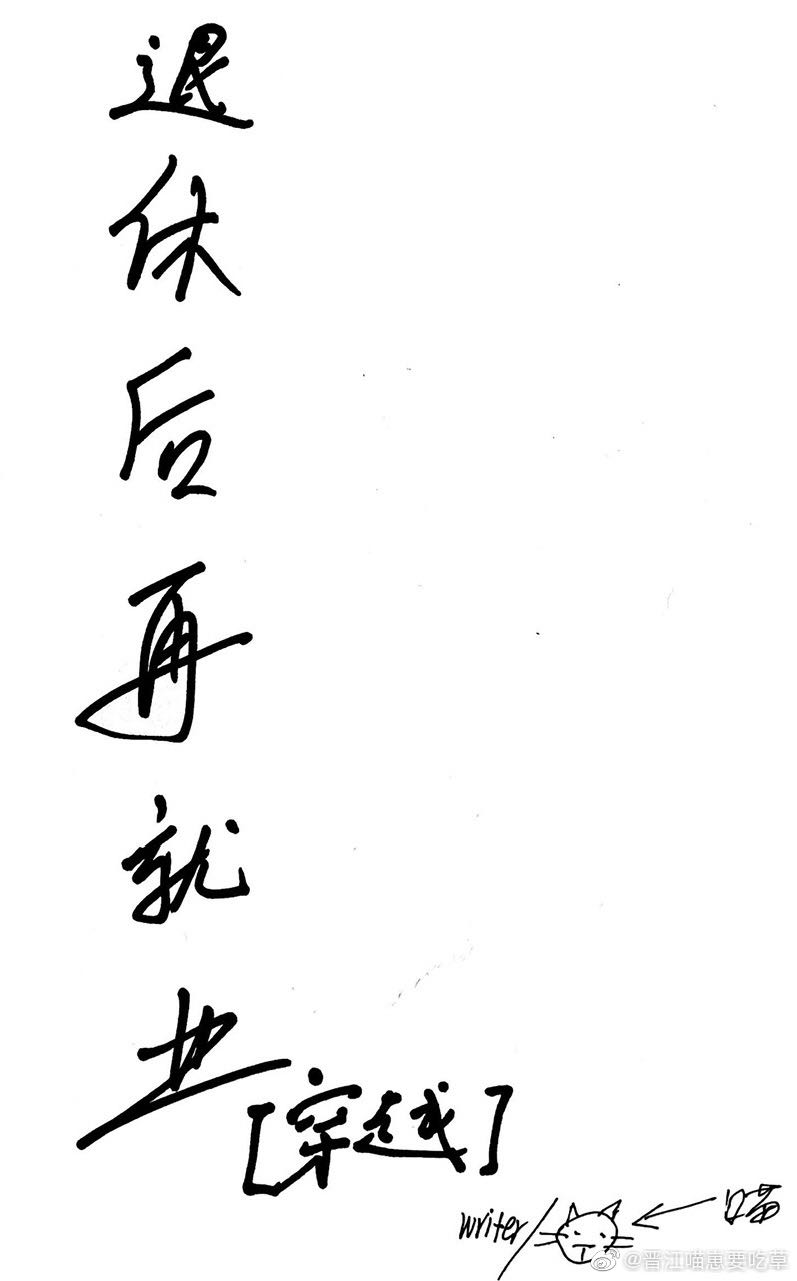 退休后再就业
[穿越]
writer/
喵
@晋江喵崽要吃草